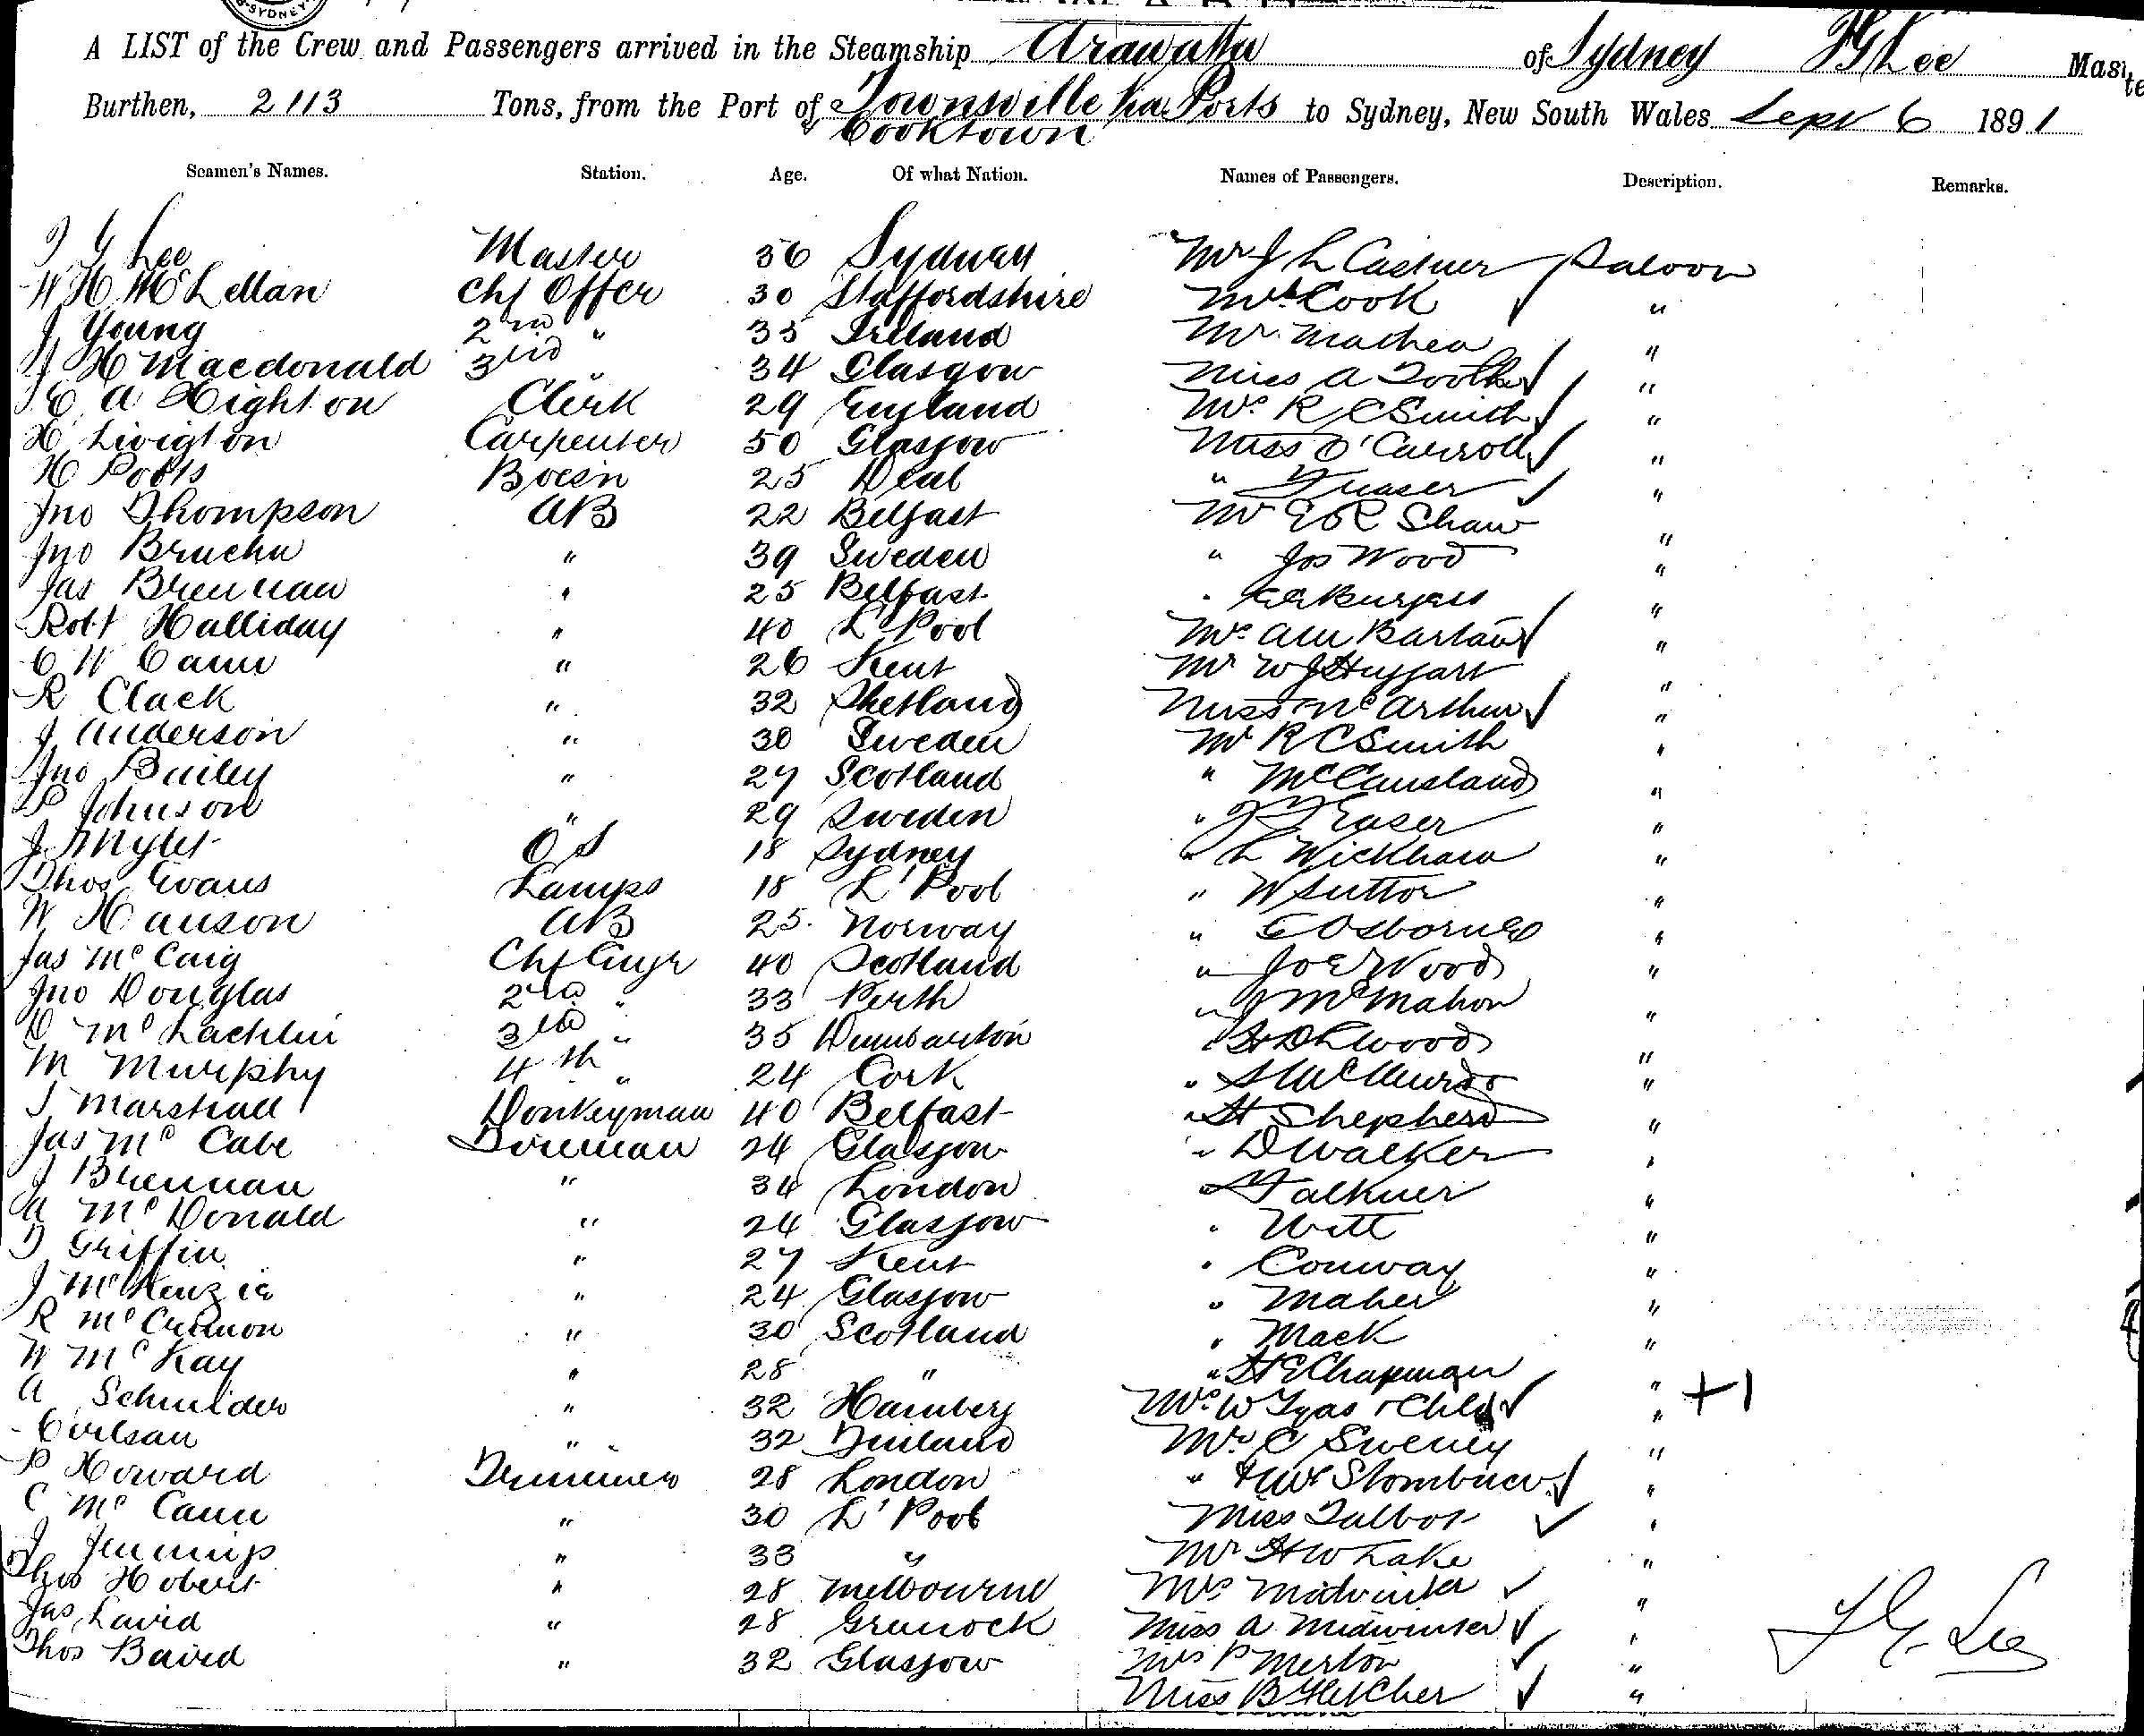 SYDNEY
A LIST of the Crew and Passengers arrived in the Steamship Arawatta of Sydney J G Lee Master
Burthen, 2113 Tons, from the Port of Townsville Via Ports to Sydney, New South Wales Sept 6 1891
& Cooktown
Seamen's Names. Station. Age. Of what Nation. Names of Passengers. Description. Remarks.
J G Lee Master 36 Sydney Mr J L Castner Saloon
W H McLellan Chf Offcr 30 Staffordshire Mrs Cook "
J Young 2nd " 35 Ireland Mr "
J H Macdonald 3rd " 34 Glasgow Miss A "
E A Highton Clerk 29 England Mrs R C Smith "
H Livigton Carpenter 50 Glasgow Miss O'Carroll "
H Potts Bosn 25 Deal " Fraser "
Jno Thompson AB 22 Belfast Mr E R Shaw "
Jno " 39 Sweden " Jos Wood "
Jas Brennan " 25 Belfast " Burgess "
Robt Halliday " 40 L'Pool Mrs Barlow "
C W Cann " 26 Kent Mr W J "
R Clack " 32 Shetland Miss McArthur "
J Anderson " 30 Sweden Mr R C Smith "
Jno Bailey " 27 Scotland " McCausland "
P Johnson " 29 Sweden " J Fraser "
J Mylet OS 18 Sydney " L Wickham "
Thos Evans Lamps 18 L'Pool " W Sutton "
W Hanson AB 25 Norway " E Osborne "
Jas McCaig Chf Engr 40 Scotland " Joe Wood "
Jno Douglas 2nd " 33 Perth " J McMahon "
D McLachlin 3rd " 35 Dumbarton " Wood "
M Murphy 4th " 24 Cork " "
J Marshall Donkeyman 40 Belfast " H Shepherd "
Jas McCabe Fireman 24 Glasgow " D Walker "
J Brennan " 34 London " Falkner "
A McDonald " 24 Glasgow " Witt "
J Griffin " 27 Kent " Conway "
J McKenzie " 24 Glasgow " Maher "
R McCrimon " 30 Scotland " Mack "
W McKay " 28 " " H E Chapman "
A Schnider " 32 Hamberg Mrs W Tyas & Child " +1
Carlsan " 32 Finland Mr C Sweney "
P Howard Trimmer 28 London " "
C McCann " 30 L'Pool Miss Talbot "
J Jennings " 33 " Mr H W Lake "
Thos Hobert " 28 Melbourne Mrs Midwinter "
Jas Laird " 28 Greenock Miss A Midwinter "
Thos Baird " 32 Glasgow Mrs P Merton "
Miss B Fletcher "
J G Lee